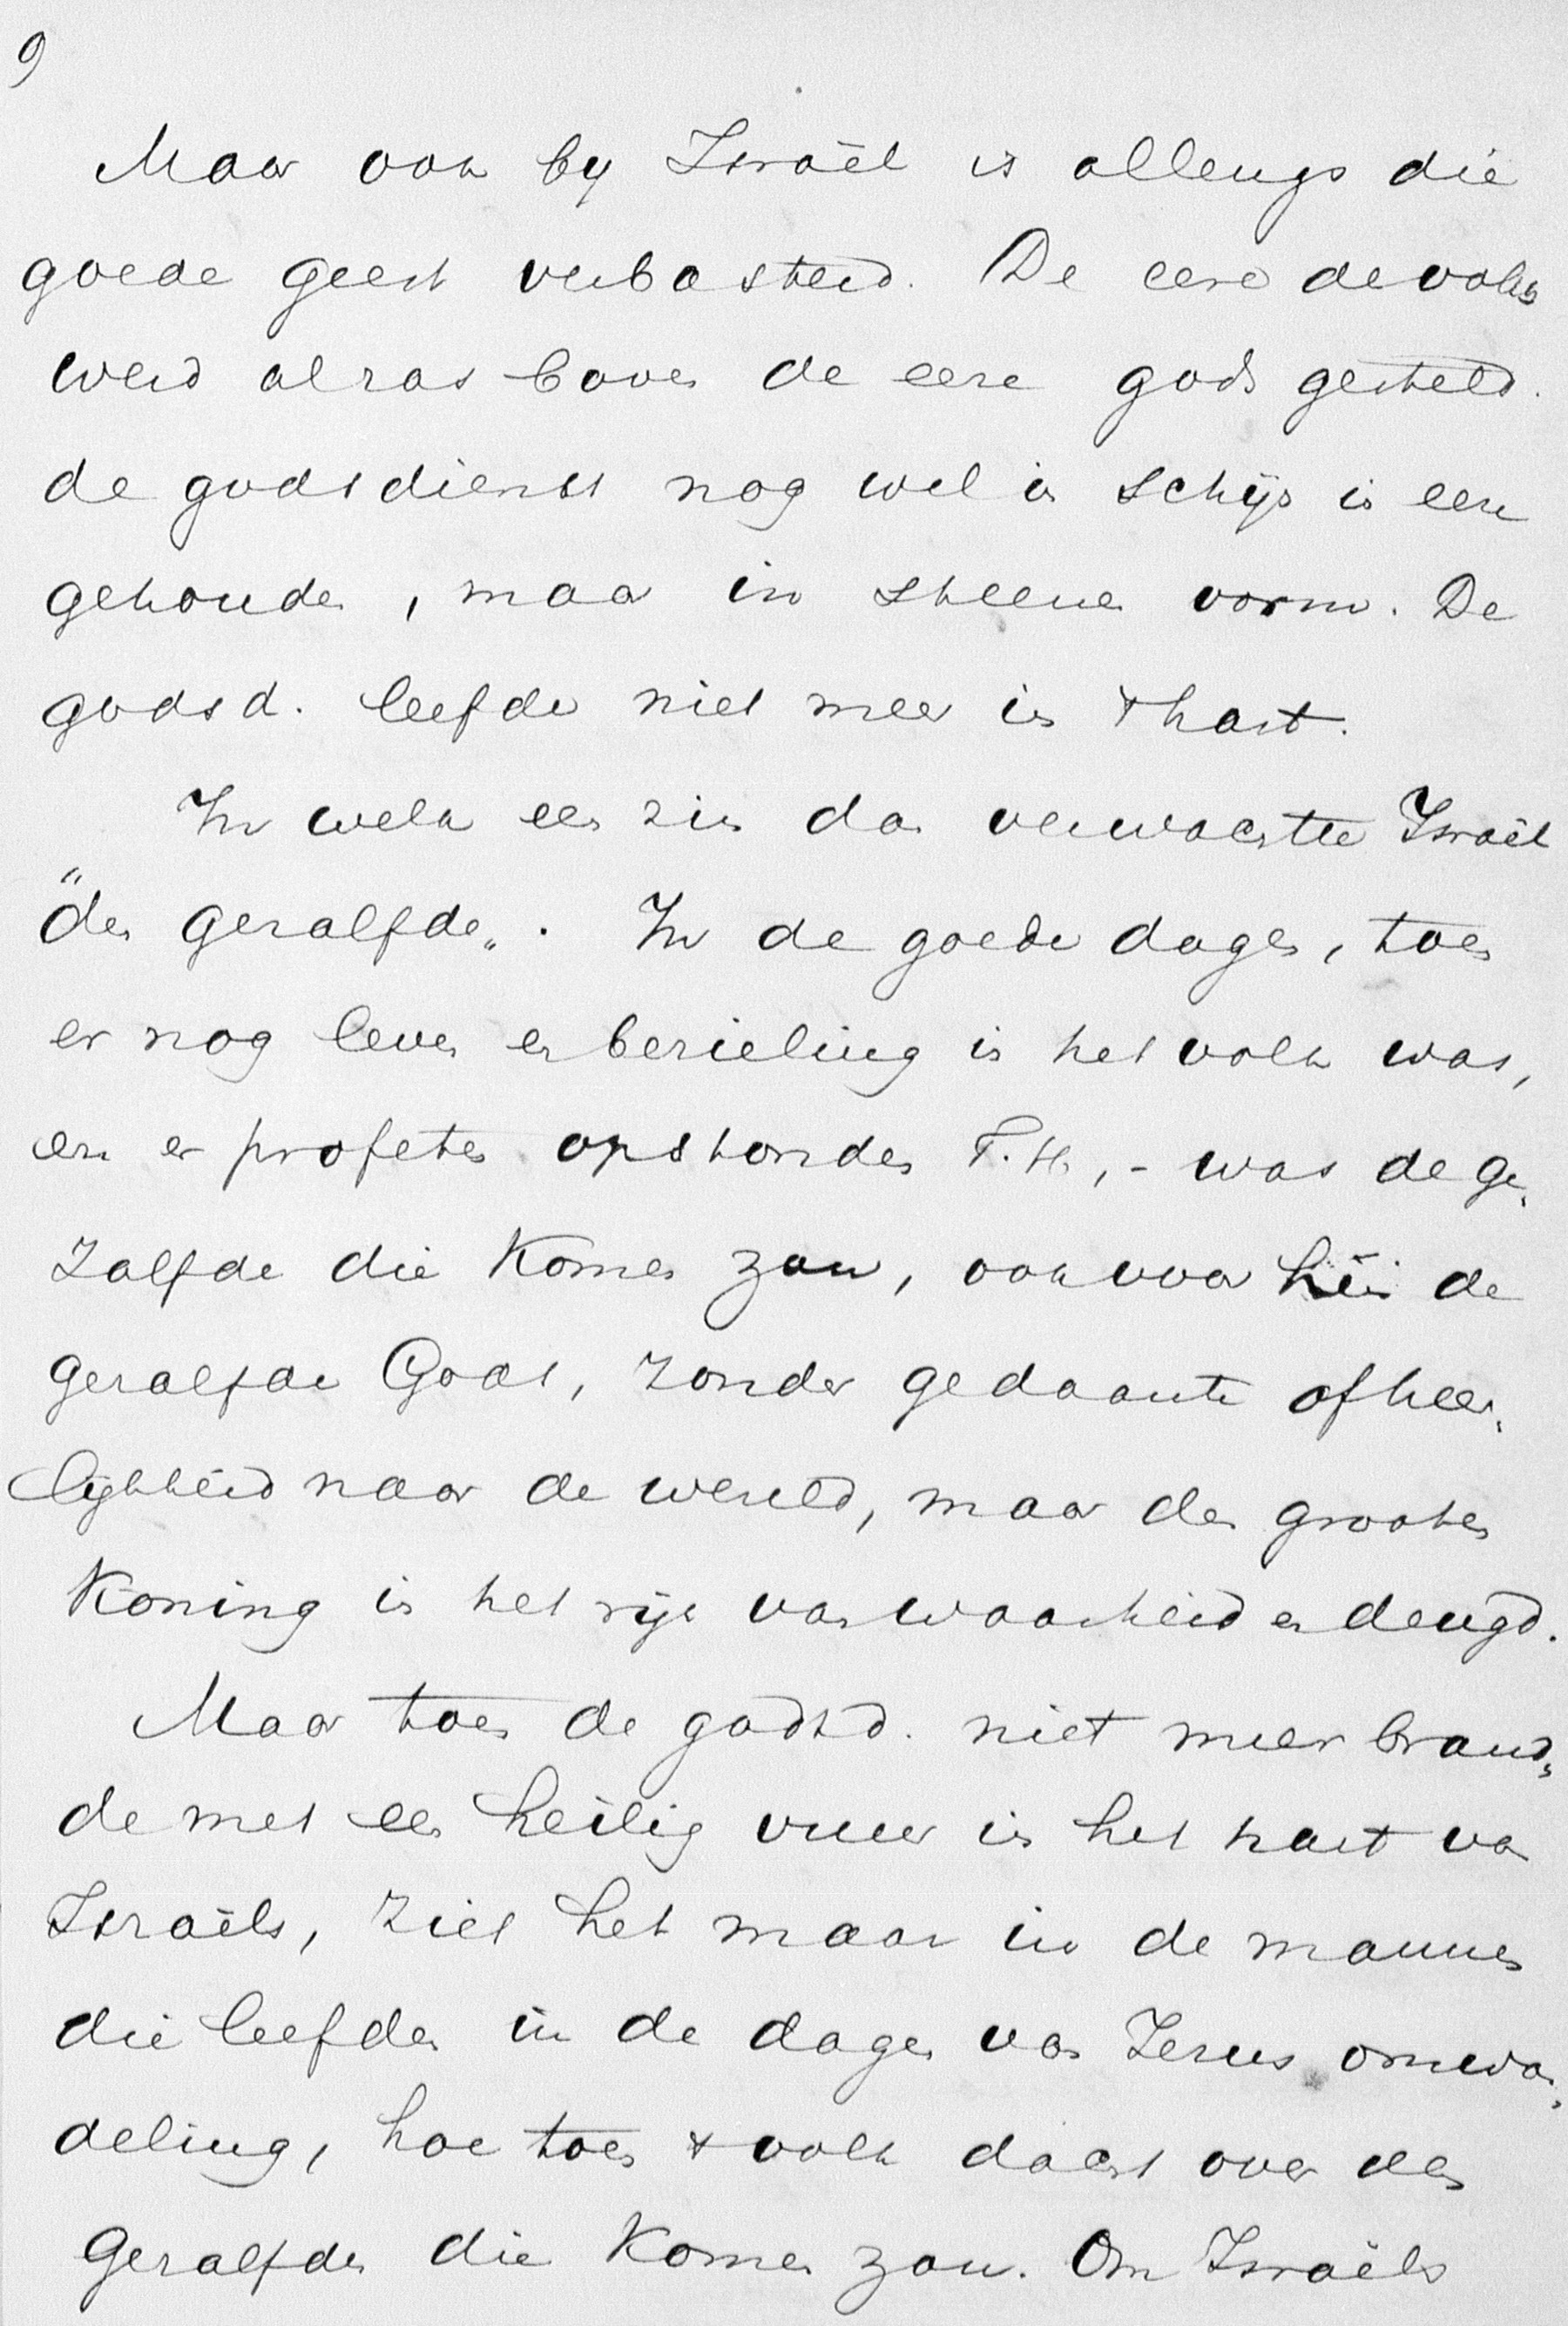 9
Maar ook by Israël is allengs die
goede geest verbasterd. De eere de volks
werd alras boven de eere gods gesteld.
de godsdienst nog wel in schijn in eere
gehouden, maar in steenen vorm. De
godsd. leefde niet meer in 't hart.
In welk een zin dan verwachtte Israël
"den gezalfde". In de goede dagen, toen
er nog leven en bezieling in het volk was,
en er profeten opstonden T.H., - was de ge„
zalfde die komen zou, ook voor hén de
gezalfde Gods, zonder gedaante of heer„
lijkheid naar de wereld, maar den grooten
Koning in het rijk van waarheid en deugd.
Maar toen de godsd. niet meer brand„
de met een heilig vuur in het hart van
Israëls, ziet het maar in de mannen
die leefden in de dagen van Jezus omwan„
deling, hoe toen 't volk dacht over den
Gezalfden die komen zou. Om Israëls